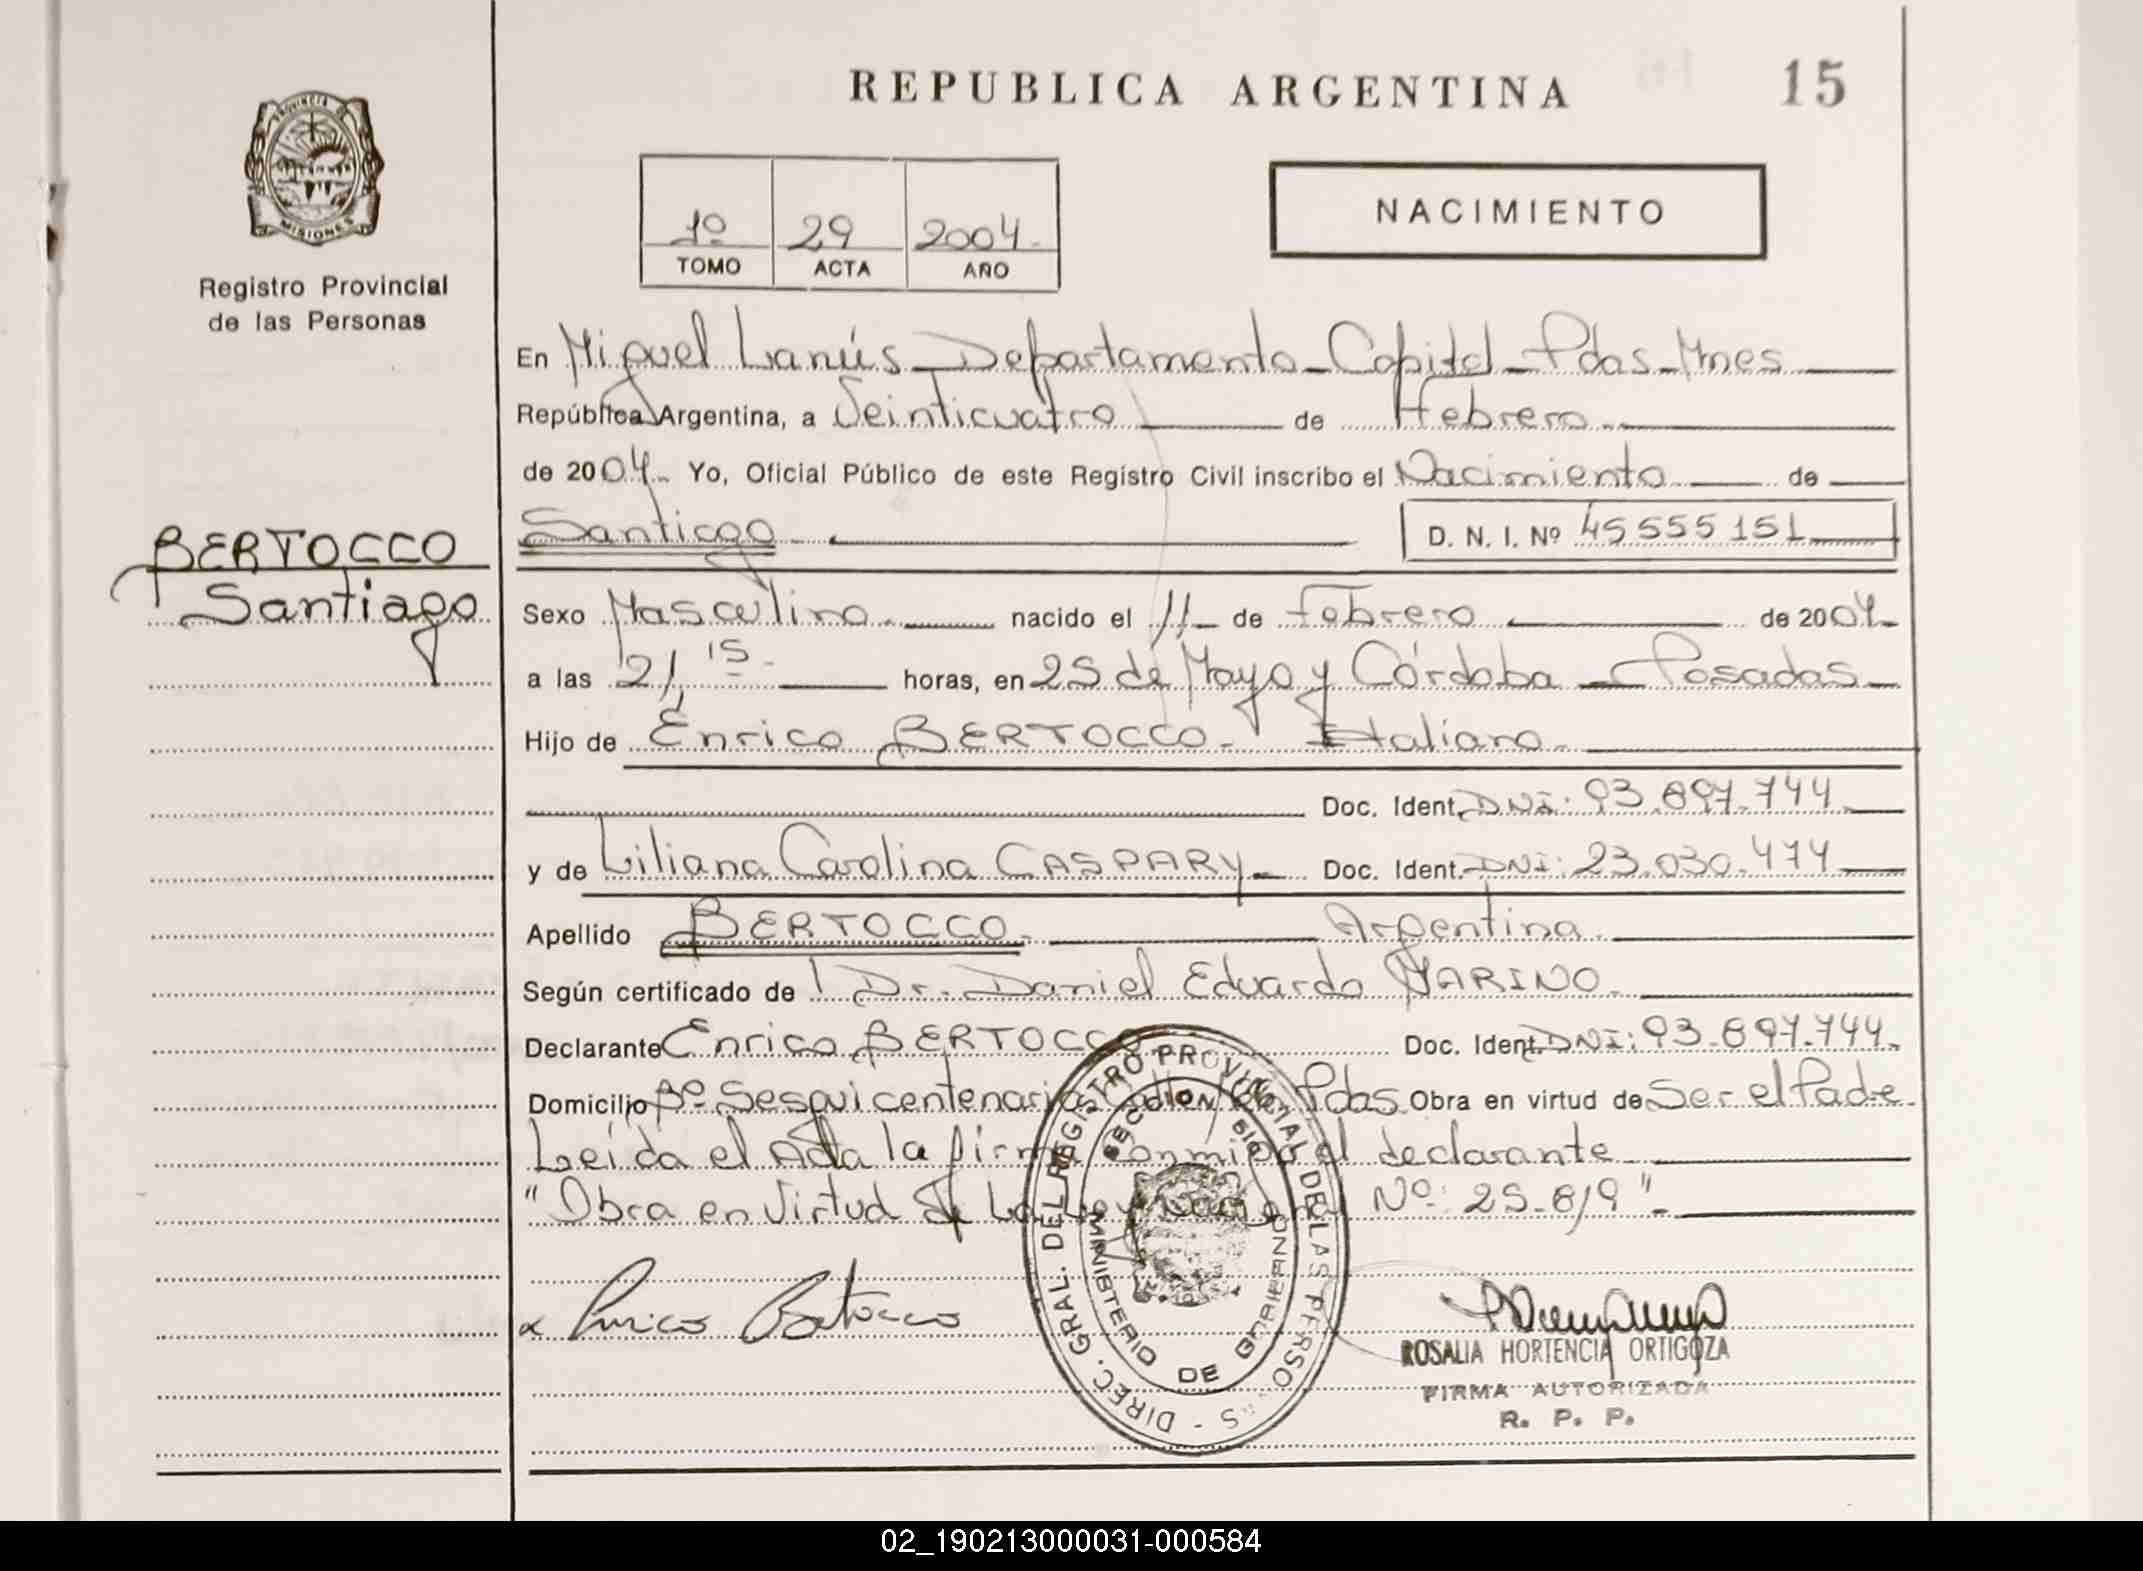 REPUBLICA ARGENTINA
15
PROVINCIA DE MISIONES
Registro Provincial
de las Personas
1º 29 2004.
TOMO ACTA AÑO
NACIMIENTO
En Miguel Lanús Departamento Capital Pdas Mnes
República Argentina, a Veinticuatro de Febrero
de 2004. Yo, Oficial Público de este Registro Civil inscribo el Nacimiento de
Santiago D. N. I. Nº 45555151
BERTOCCO
Santiago
Sexo Masculino nacido el 11 de Febrero de 2004
a las 21,15 horas, en 25 de Mayo y Córdoba Posadas
Hijo de Enrico BERTOCCO Italiano
Doc. Ident. DNI: 93.897.744
y de Liliana Carolina CASPARY Doc. Ident. DNI: 23.030.474
Apellido BERTOCCO Argentina
Según certificado de Dr. Daniel Eduardo MARINO
Declarante Enrico BERTOCCO Doc. Ident. DNI: 93.897.744
Domicilio Bº Sesquicentenario Pdas Obra en virtud de Ser el Padre
Leída el Acta la firma conmigo el declarante
"Obra en Virtud de La Ley Nacional Nº: 25.819"
Enrico Bertocco
DIREC. GRAL. DEL REGISTRO PROVINCIAL DE LAS PERSONAS
MINISTERIO DE GOBIERNO
ROSALIA HORTENCIA ORTIGOZA
FIRMA AUTORIZADA
R. P. P.
02_190213000031-000584